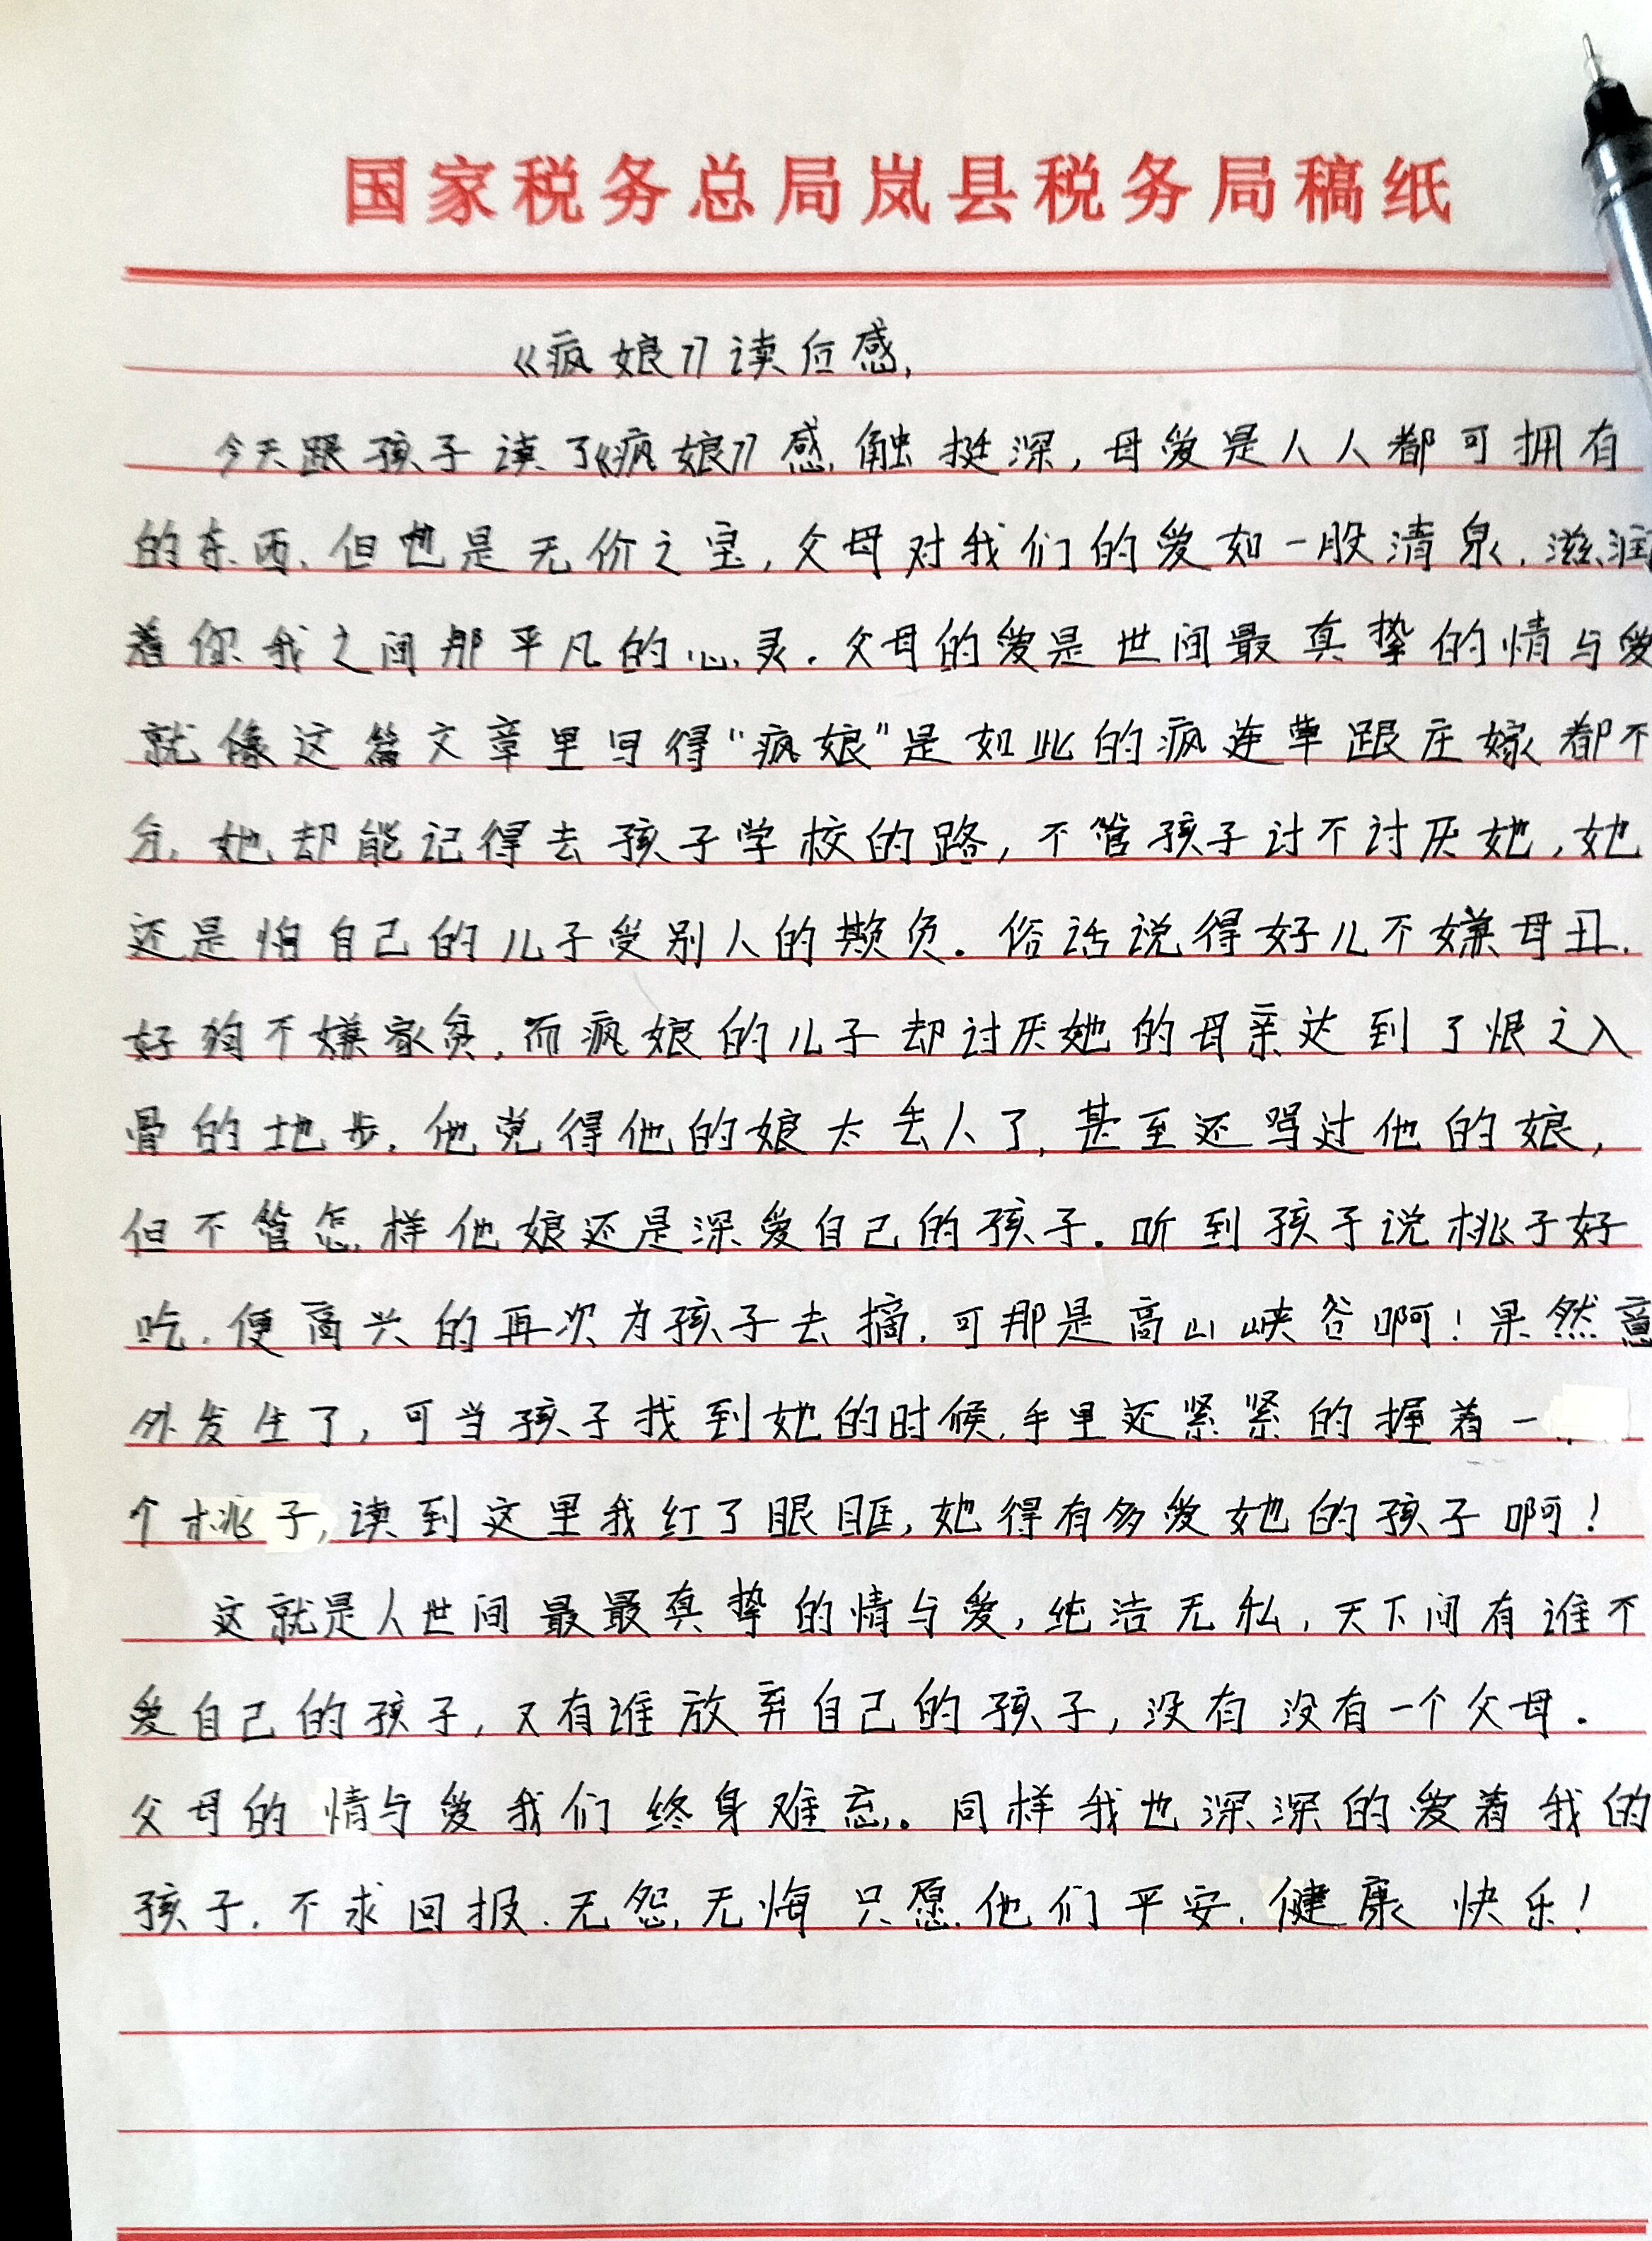 国家税务总局岚县税务局稿纸
《疯娘》读后感,
今天跟孩子读了《疯娘》感触挺深,母爱是人人都可拥有
的东西、但也是无价之宝,父母对我们的爱如一股清泉,滋润
着你我之间那平凡的心灵.父母的爱是世间最真挚的情与爱
就像这篇文章里写得“疯娘”是如此的疯连草跟庄嫁都不
分,她却能记得去孩子学校的路,不管孩子讨不讨厌她,她
还是怕自己的儿子受别人的欺负。俗话说得好儿不嫌母丑.
好狗不嫌家贫,而疯娘的儿子却讨厌她的母亲达到了恨之入
骨的地步.他觉得他的娘太丢人了,甚至还骂过他的娘,
但不管怎样他娘还是深爱自己的孩子.听到孩子说桃子好
吃.便高兴的再次为孩子去摘.可那是高山峡谷啊!果然意
外发生了,可当孩子找到她的时候,手里还紧紧的握着一
个桃子,读到这里我红了眼眶,她得有多爱她的孩子啊!
这就是人世间最最真挚的情与爱,纯洁无私,天下间有谁不
爱自己的孩子,又有谁放弃自己的孩子,没有没有一个父母.
父母的情与爱我们终身难忘。同样我也深深的爱着我的
孩子.不求回报.无怨无悔只愿他们平安.健康快乐!